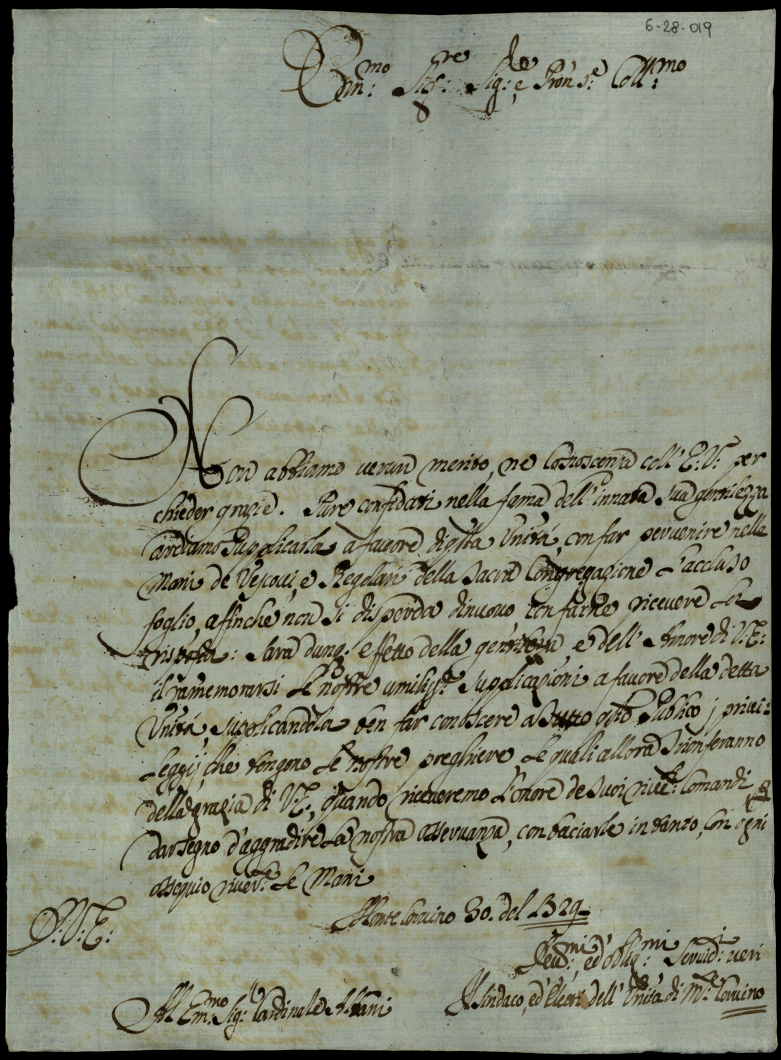 6-28-019
Em:mo Sig:re Sig:re e Pron: Coll:mo
Non abbiamo verun merito, ne Conoscenza coll' E: V: per
chieder grazie. Pure confidati nella fama dell' innata sua gentilezza
ardiamo supplicarla a favore di questa Unità, con far pervenire nelle
Mani de Vescovi, e Regolari della Sacra Congregazione l'accluso
foglio, affinche non si disperda di nuovo con farne ricevere la
risposta: Sarà dunq. effetto della gentilezza e dell' Amore di V: E:
il ramemorarsi le nostre umiliss:e supplicazioni a favore della detta
Unità, supplicandola ben far conoscere a tutto questo Publico i privi=
leggij, che tengono le nostre preghiere le quali allora trionferanno
della grazia di V: E:, quando riceveremo l'onore de suoi Comandi
dar segno d'aggradire la nostra osservanza, con baciarle in tanto, con ogni
ossequio river:te le Mani
Monte Corvino 30. del 1729
D: V: E:
Dev:mi, ed oblig:mi Servid:i veri
All' Em:mo Sig:re Cardinale Albani
Il Sindaco, ed Eletti dell' Unità di M:te Corvino